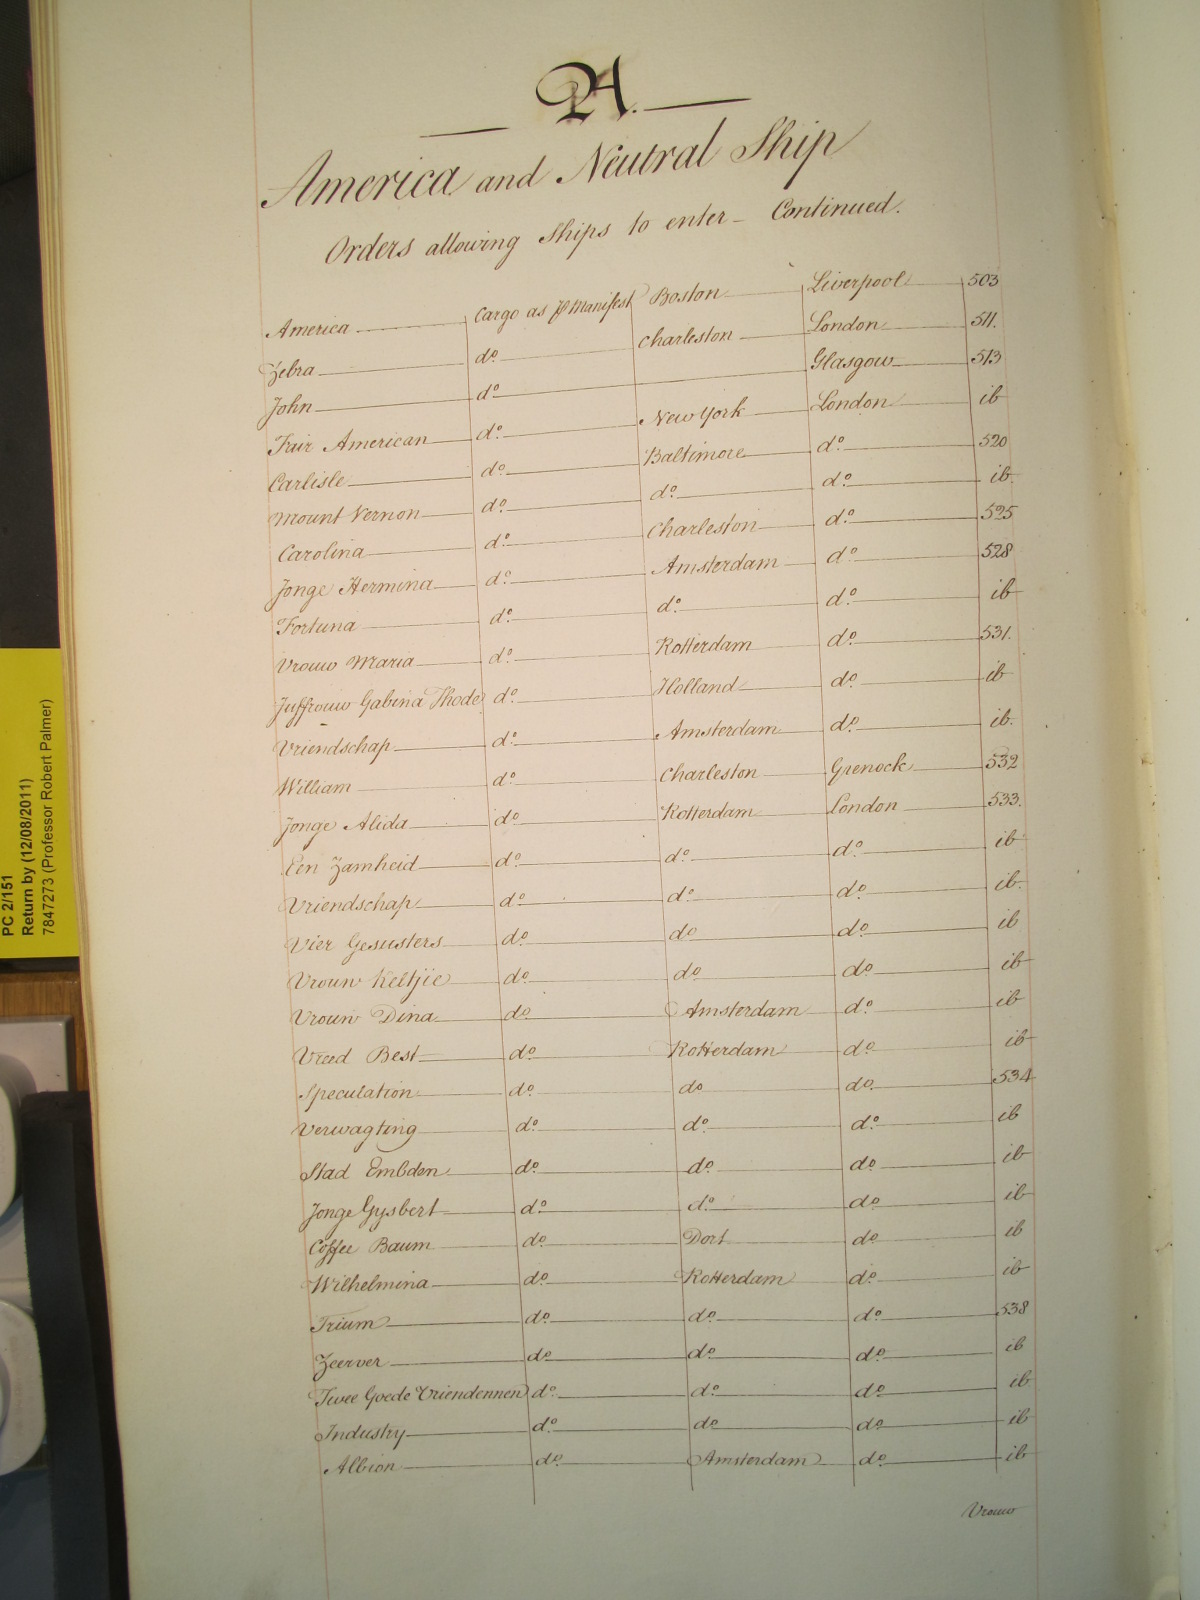 A.
America and Neutral Ship
Orders allowing Ships to enter - Continued.
America Cargo as P Manifest Boston Liverpool 503
Zebra do Charleston London 511.
John do Glasgow 513
Fair American do New York London ib
Carlisle do Baltimore do 520
Mount Vernon do do do ib.
Carolina do Charleston do 525
Jonge Hermina do Amsterdam do 528
Fortuna do do do ib
Vrouw Maria do Rotterdam do 531.
Juffrouw Gabina Thode do Holland do ib
Vriendschap do Amsterdam do ib.
William do Charleston Grenock 532
Jonge Alida do Rotterdam London 533.
Een Zamheid do do do ib
Vriendschap do do do ib.
Vier Gesusters do do do ib
Vroun Keltjie do do do ib
Vroun Dina do Amsterdam do ib
Vreed Best do Rotterdam do ib
Speculation do do do 534
Verwagting do do do ib
Stad Embden do do do ib
Jonge Gysbert do do do ib
Coffee Baum do Dort do ib
Wilhelmina do Rotterdam do ib
Trium do do do 538
Zeerver do do do ib
Twee Goede Vriendennen do do do ib
Industry do do do ib
Albion do Amsterdam do ib
Vrouw
PC 2/151
Return by (12/08/2011)
7847273 (Professor Robert Palmer)